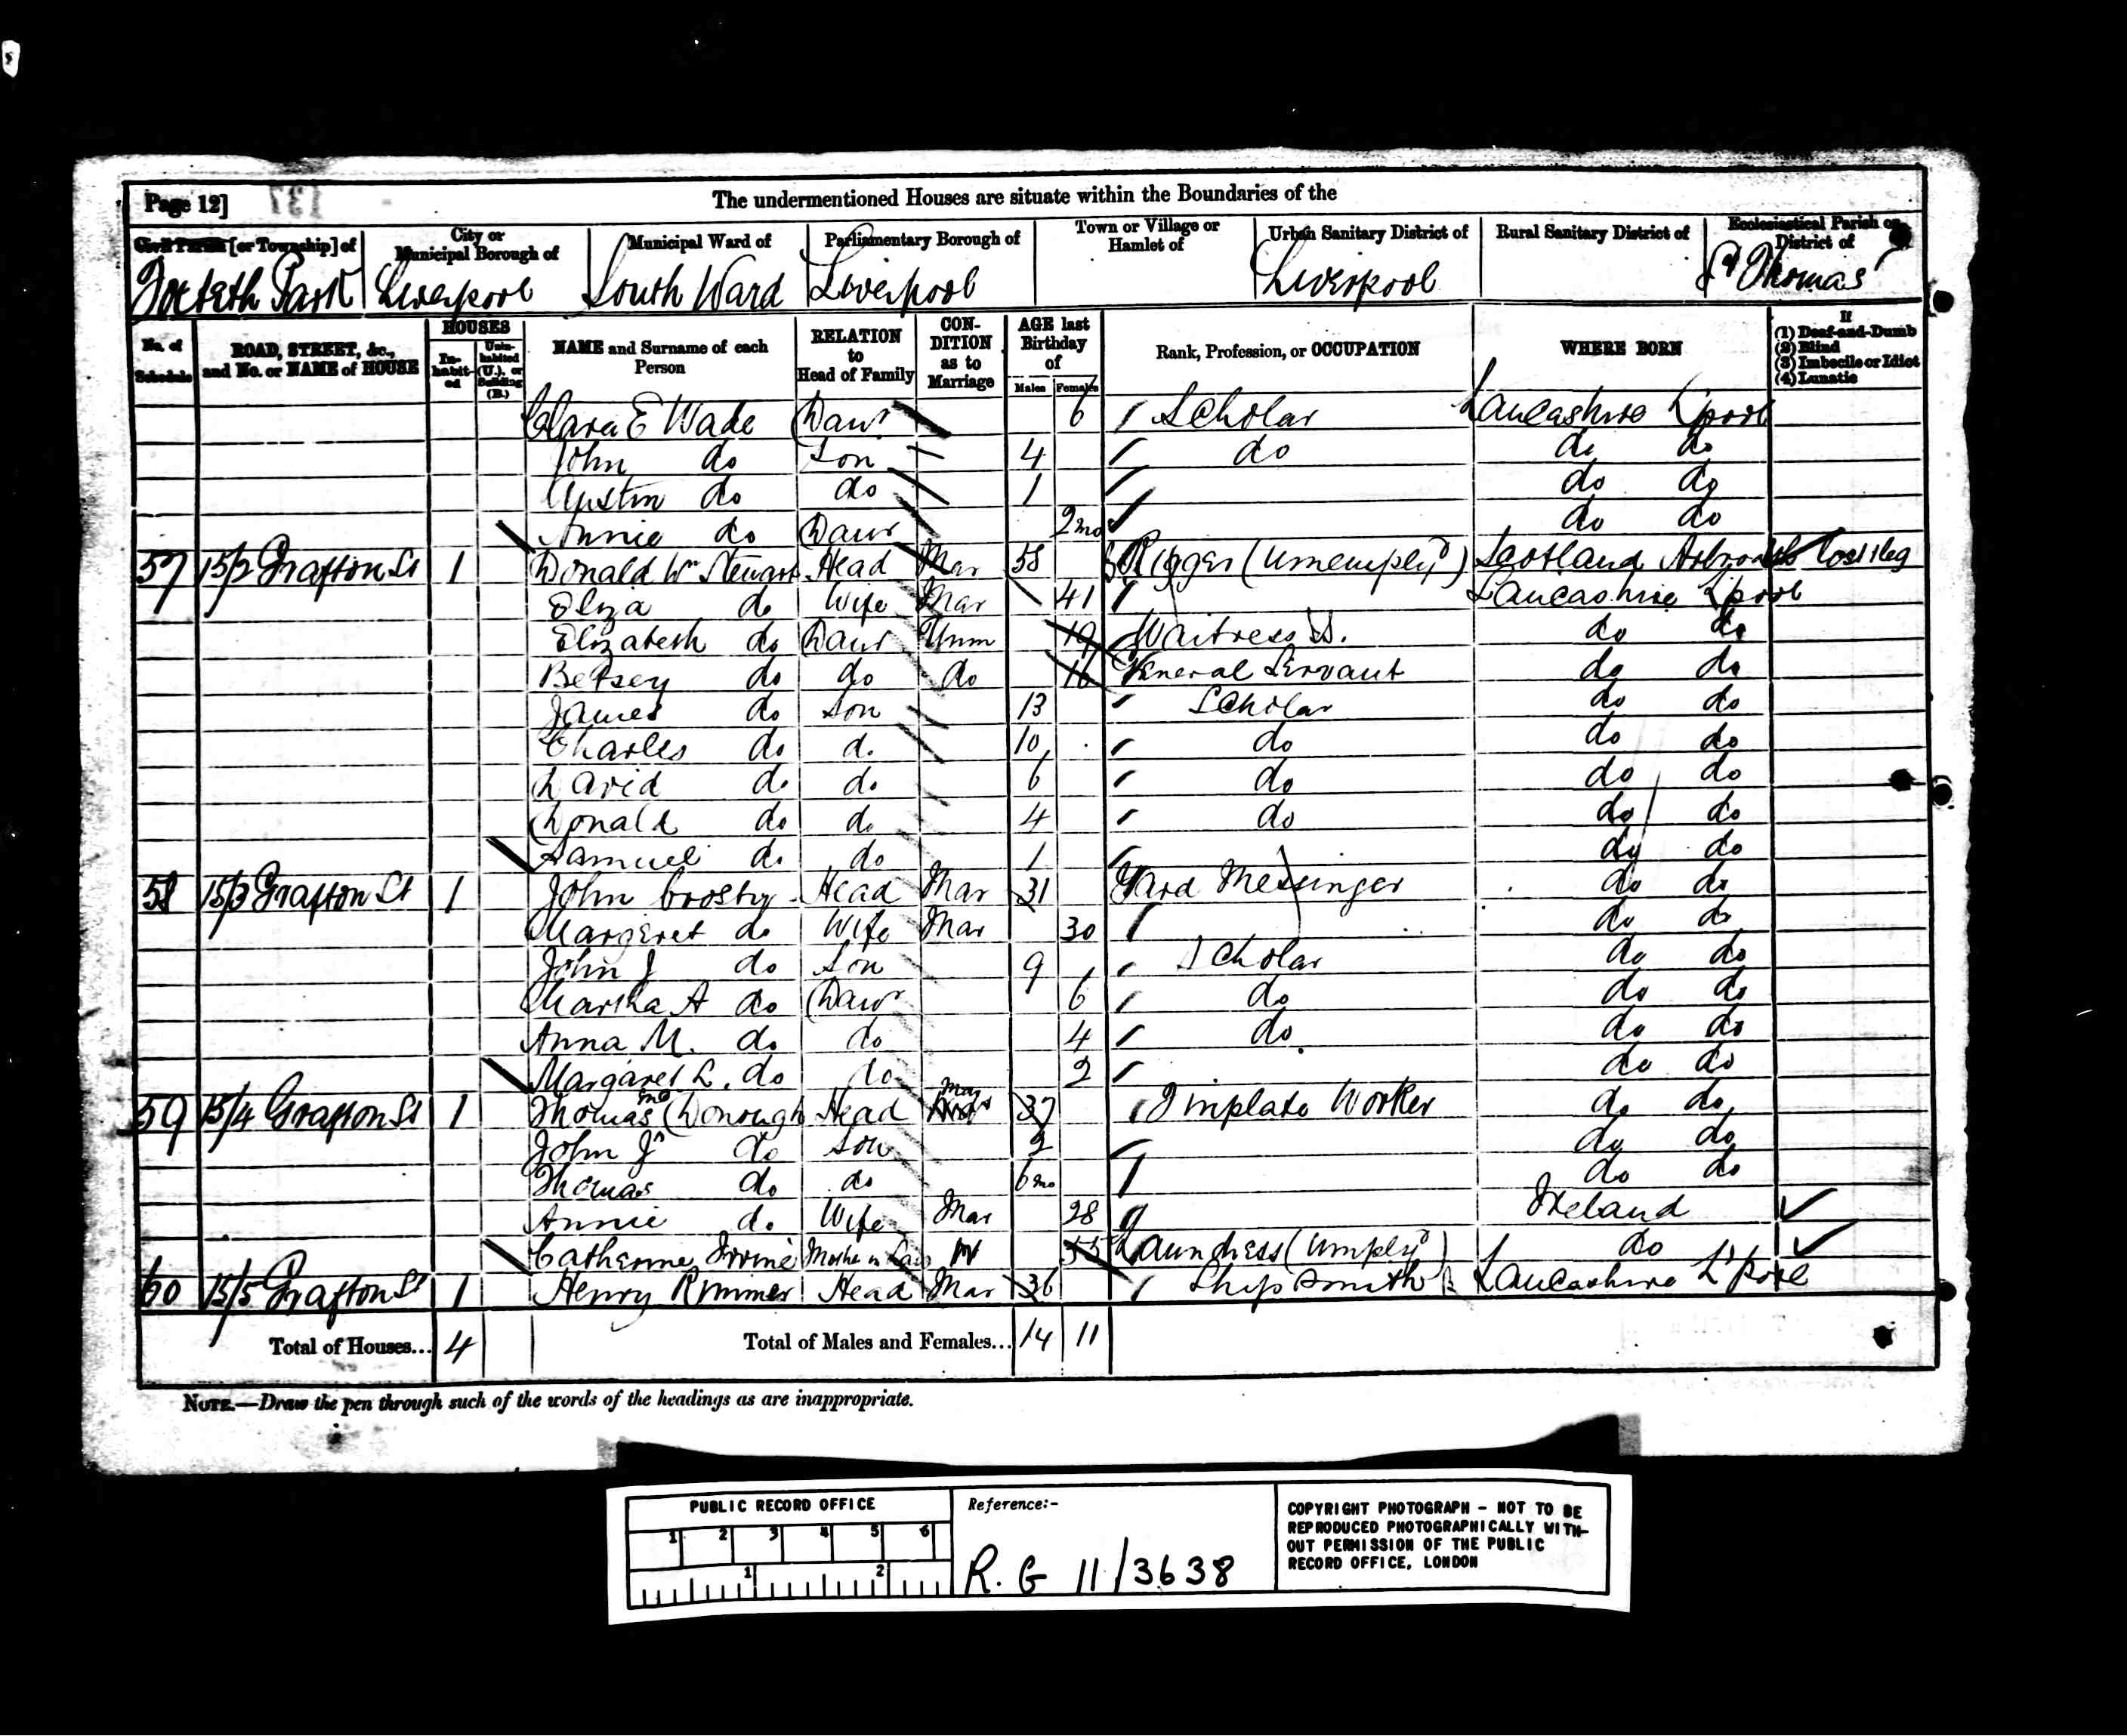 Page 12]
The undermentioned Houses are situate within the Boundaries of the
Civil Parish [or Township] of
City or Municipal Borough of
Municipal Ward of
Parliamentary Borough of
Town or Village or Hamlet of
Urban Sanitary District of
Rural Sanitary District of
Ecclesiastical Parish or District of
Toxteth Park Liverpool South Ward Liverpool Liverpool St Thomas
No. of Schedule
ROAD, STREET, &c., and No. or NAME of HOUSE
HOUSES
In-habit-ed
Unin-habited (U.), or Building (B.)
NAME and Surname of each Person
RELATION to Head of Family
CON-DITION as to Marriage
AGE last Birthday of
Males Females
Rank, Profession, or OCCUPATION
WHERE BORN
If
(1) Deaf-and-Dumb
(2) Blind
(3) Imbecile or Idiot
(4) Lunatic
Clara E Wade Daur 6 Scholar Lancashire L'pool
John do Son 4 do do do
Austin do do 1 do do
Annie do Daur 2mo do do
57 15/2 Grafton St 1 Donald Wm Stewart Head Mar 58 Rigger (Unemplyd) Scotland Lost leg
Eliza do Wife Mar 41 Lancashire L'pool
Elizabeth do Daur Unm 19 Waitress do do
Betsey do do do 16 General Servant do do
James do Son 13 Scholar do do
Charles do do 10 do do do
David do do 6 do do do
Donald do do 4 do do do
Samuel do do 1 do do
58 15/3 Grafton St 1 John Crosby Head Mar 31 Yard Messinger do do
Margeret do Wife Mar 30 do do
John J do Son 9 Scholar do do
Martha A do Daur 6 do do do
Anna M. do do 4 do do do
Margaret L. do do 2 do do
59 15/4 Grafton St 1 Thomas McDonough Head Mar 37 Tinplate Worker do do
John J do Son 2 do do
Thomas do do 6mo do do
Annie do Wife Mar 28 Ireland
Catherine Irvine Mother in Law W 55 Laundress (Umplyd) do
60 15/5 Grafton St 1 Henry Rimmer Head Mar 36 Ship Smith Lancashire L'pool
Total of Houses... 4 Total of Males and Females... 14 11
NOTE.—Draw the pen through such of the words of the headings as are inappropriate.
PUBLIC RECORD OFFICE
1 2 3 4 5 6
1 2
Reference:-
R.G 11/3638
COPYRIGHT PHOTOGRAPH - NOT TO BE
REPRODUCED PHOTOGRAPHICALLY WITH-
OUT PERMISSION OF THE PUBLIC
RECORD OFFICE, LONDON